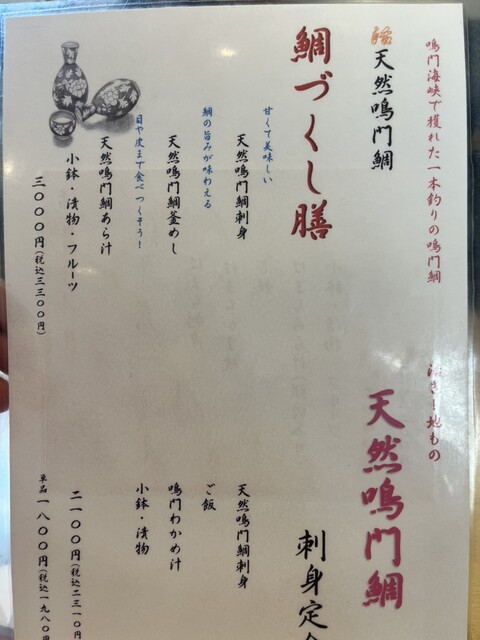 鳴門海峡で獲れた一本釣りの鳴門鯛
活天然鳴門鯛
鯛づくし膳
甘くて美味しい
天然鳴門鯛刺身
鯛の旨みが味わえる
天然鳴門鯛釜めし
目や皮まで食べつくそう!
天然鳴門鯛あら汁
小鉢・漬物・フルーツ
三〇〇〇円(税込三三〇〇円)
活き!地もの
天然鳴門鯛
刺身定
天然鳴門鯛刺身
ご飯
鳴門わかめ汁
小鉢・漬物
二一〇〇円(税込二三一〇円
単品一八〇〇円(税込一九八〇